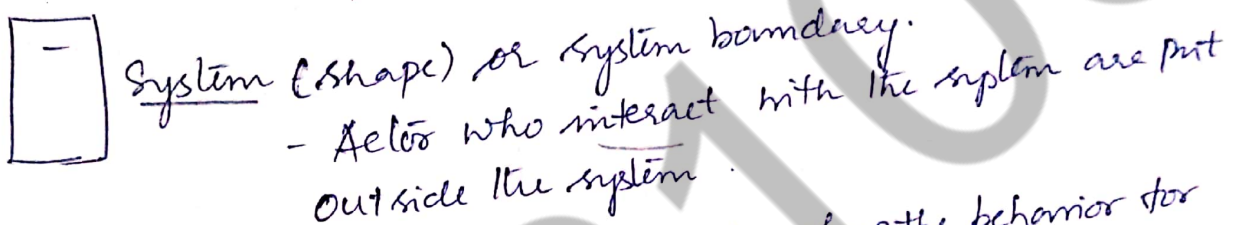 System (shape) or system boundary.
- Actor who interact with the system are put
outside the system.
behavior for